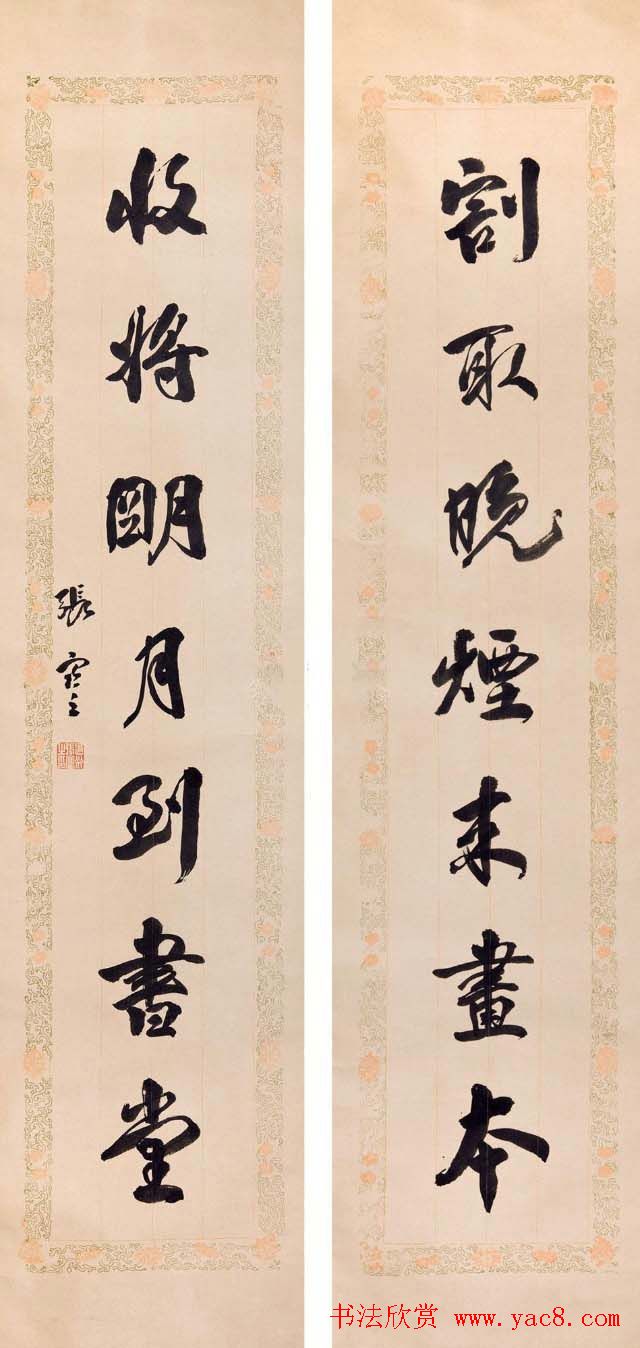 割取晚煙来畫本
收将明月到書堂
張謇
书法欣赏 www.yac8.com